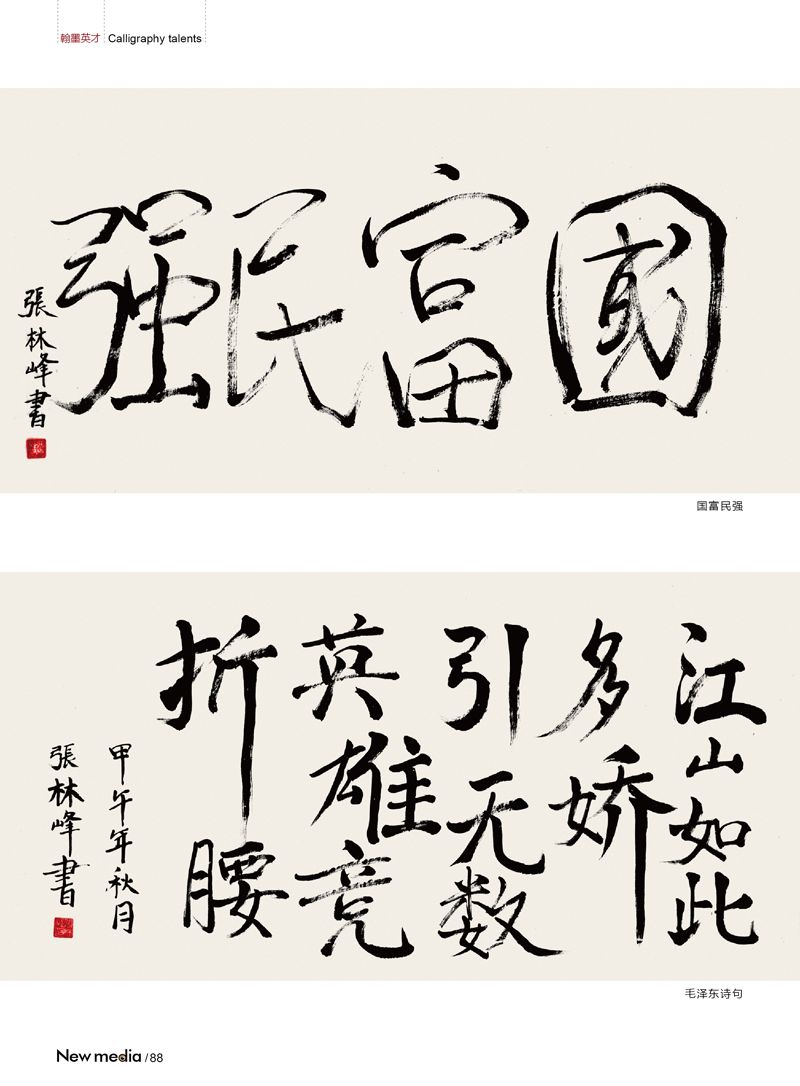 翰墨英才 Calligraphy talents
國富民强
張林峰書
国富民强
江山如此
多娇
引无数
英雄竞
折腰
甲午年秋月
張林峰書
毛泽东诗句
New media /88